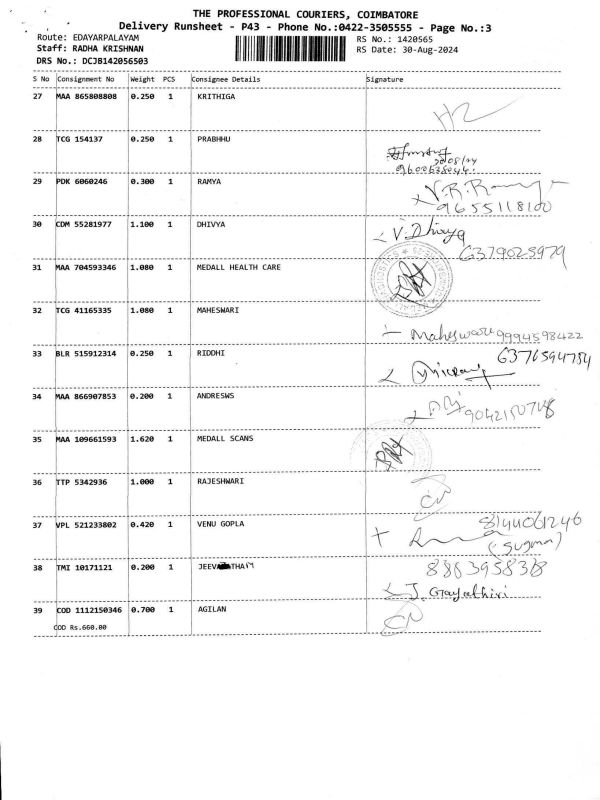 THE PROFESSIONAL COURIERS, COIMBATORE
Delivery Runsheet - P43 - Phone No.:0422-3505555 - Page No.:3
Route: EDAYARPALAYAM
RS No.: 1420565
Staff: RADHA KRISHNAN
RS Date: 30-Aug-2024
DRS No.: DCJB142056503
S No Consignment No Weight PCS Consignee Details Signature
27 MAA 865808808 0.250 1 KRITHIGA
28 TCG 154137 0.250 1 PRABHHU
9600638044
29 PDK 6060246 0.300 1 RAMYA
9655118100
30 CDM 55281977 1.100 1 DHIVYA
V. Dhivya
6379025979
31 MAA 704593346 1.080 1 MEDALL HEALTH CARE
32 TCG 41165335 1.080 1 MAHESWARI
Maheswari 9994598422
33 BLR 515912314 0.250 1 RIDDHI
6376594754
34 MAA 866907853 0.200 1 ANDRESWS
35 MAA 109661593 1.620 1 MEDALL SCANS
36 TTP 5342936 1.000 1 RAJESHWARI
37 VPL 521233802 0.420 1 VENU GOPLA
8144061246
38 TMI 10171121 0.200 1
J. Gayathiri
39 COD 1112150346 0.700 1 AGILAN
COD Rs.660.00